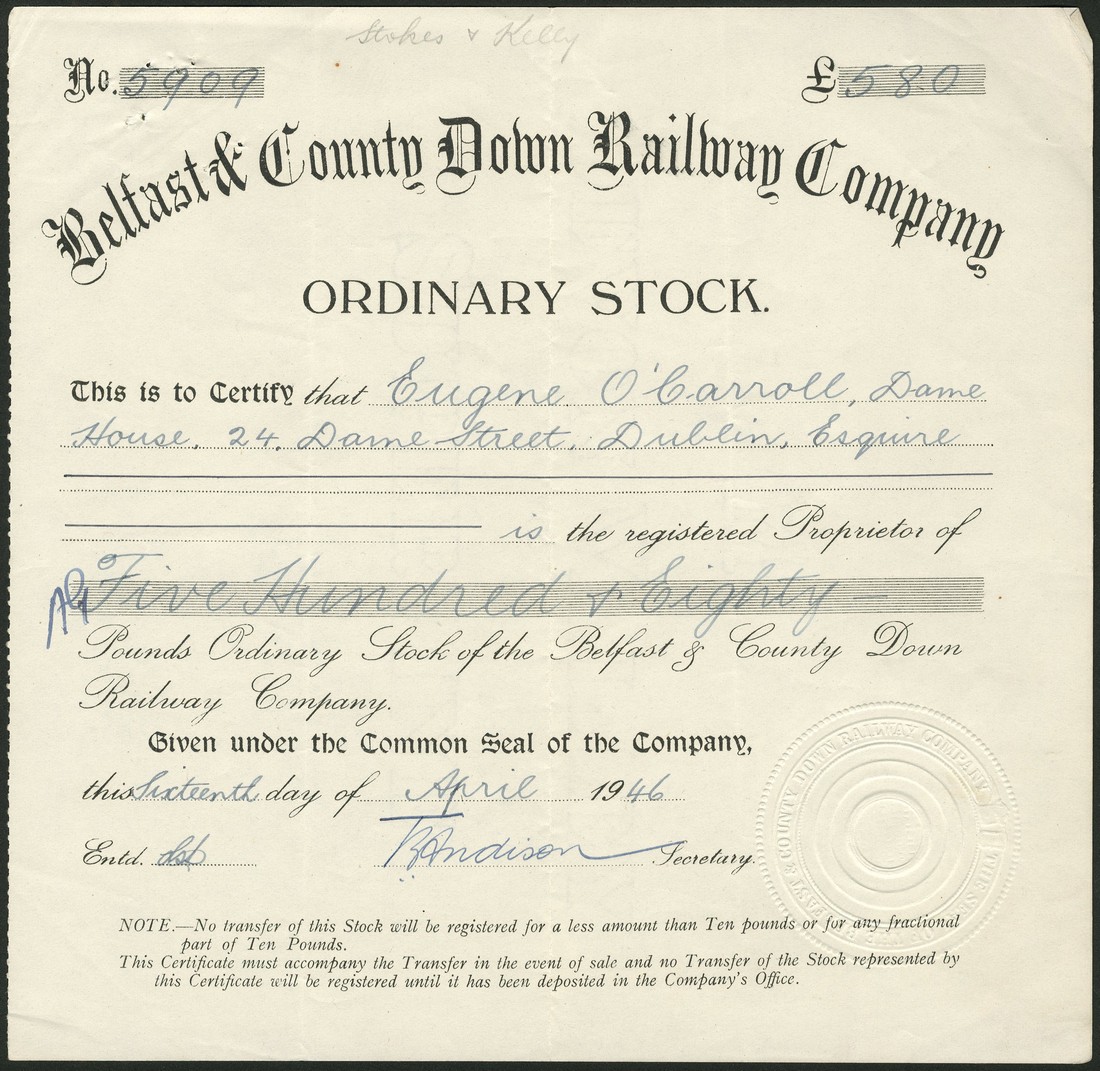 Stokes & Kelly
No. 5909 £580
Belfast & County Down Railway Company
ORDINARY STOCK.
This is to Certify that Eugene O'Carroll, Dame
House, 24, Dame Street, Dublin, Esquire
is the registered Proprietor of
Five Hundred & Eighty —
Pounds Ordinary Stock of the Belfast & County Down
Railway Company.
Given under the Common Seal of the Company,
this Sixteenth day of April 1946
Entd. Secretary.
NOTE.—No transfer of this Stock will be registered for a less amount than Ten pounds or for any fractional
part of Ten Pounds.
This Certificate must accompany the Transfer in the event of sale and no Transfer of the Stock represented by
this Certificate will be registered until it has been deposited in the Company's Office.